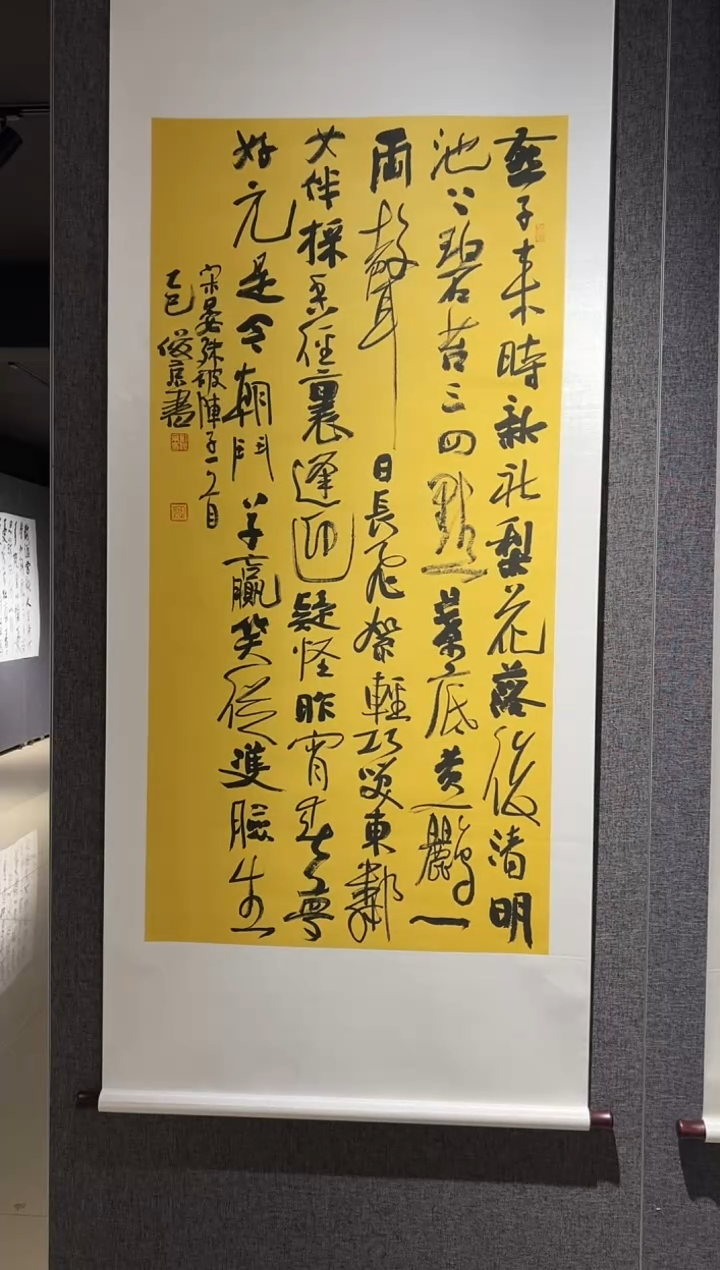 燕子来時新社梨花落後清明
池上碧苔三四點葉底黄鸝一
兩聲 日長飛絮輕巧笑東鄰
女伴採桑徑裏逢迎疑怪昨宵春夢
好元是今朝鬥草贏笑從雙臉生
宋晏殊破陣子一首
乙巳 俊書